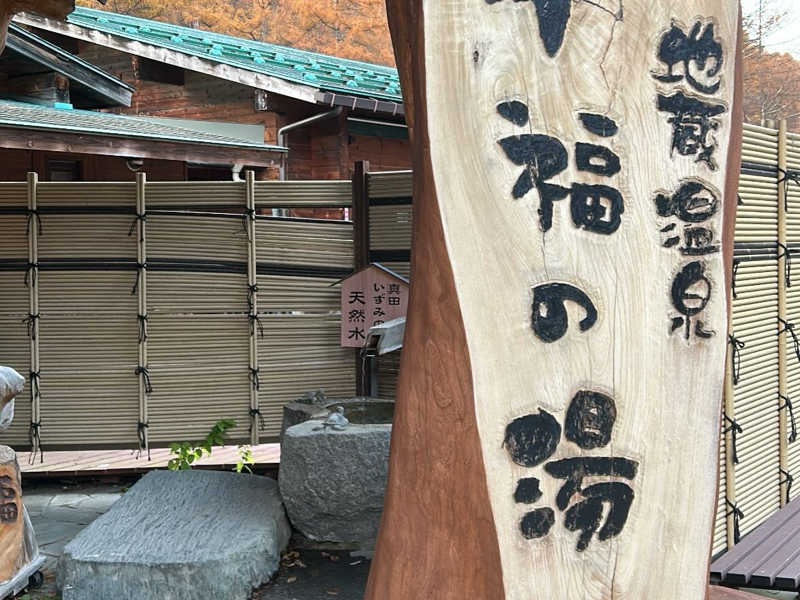 地蔵温泉
福の湯
真田
いずみの
天然水